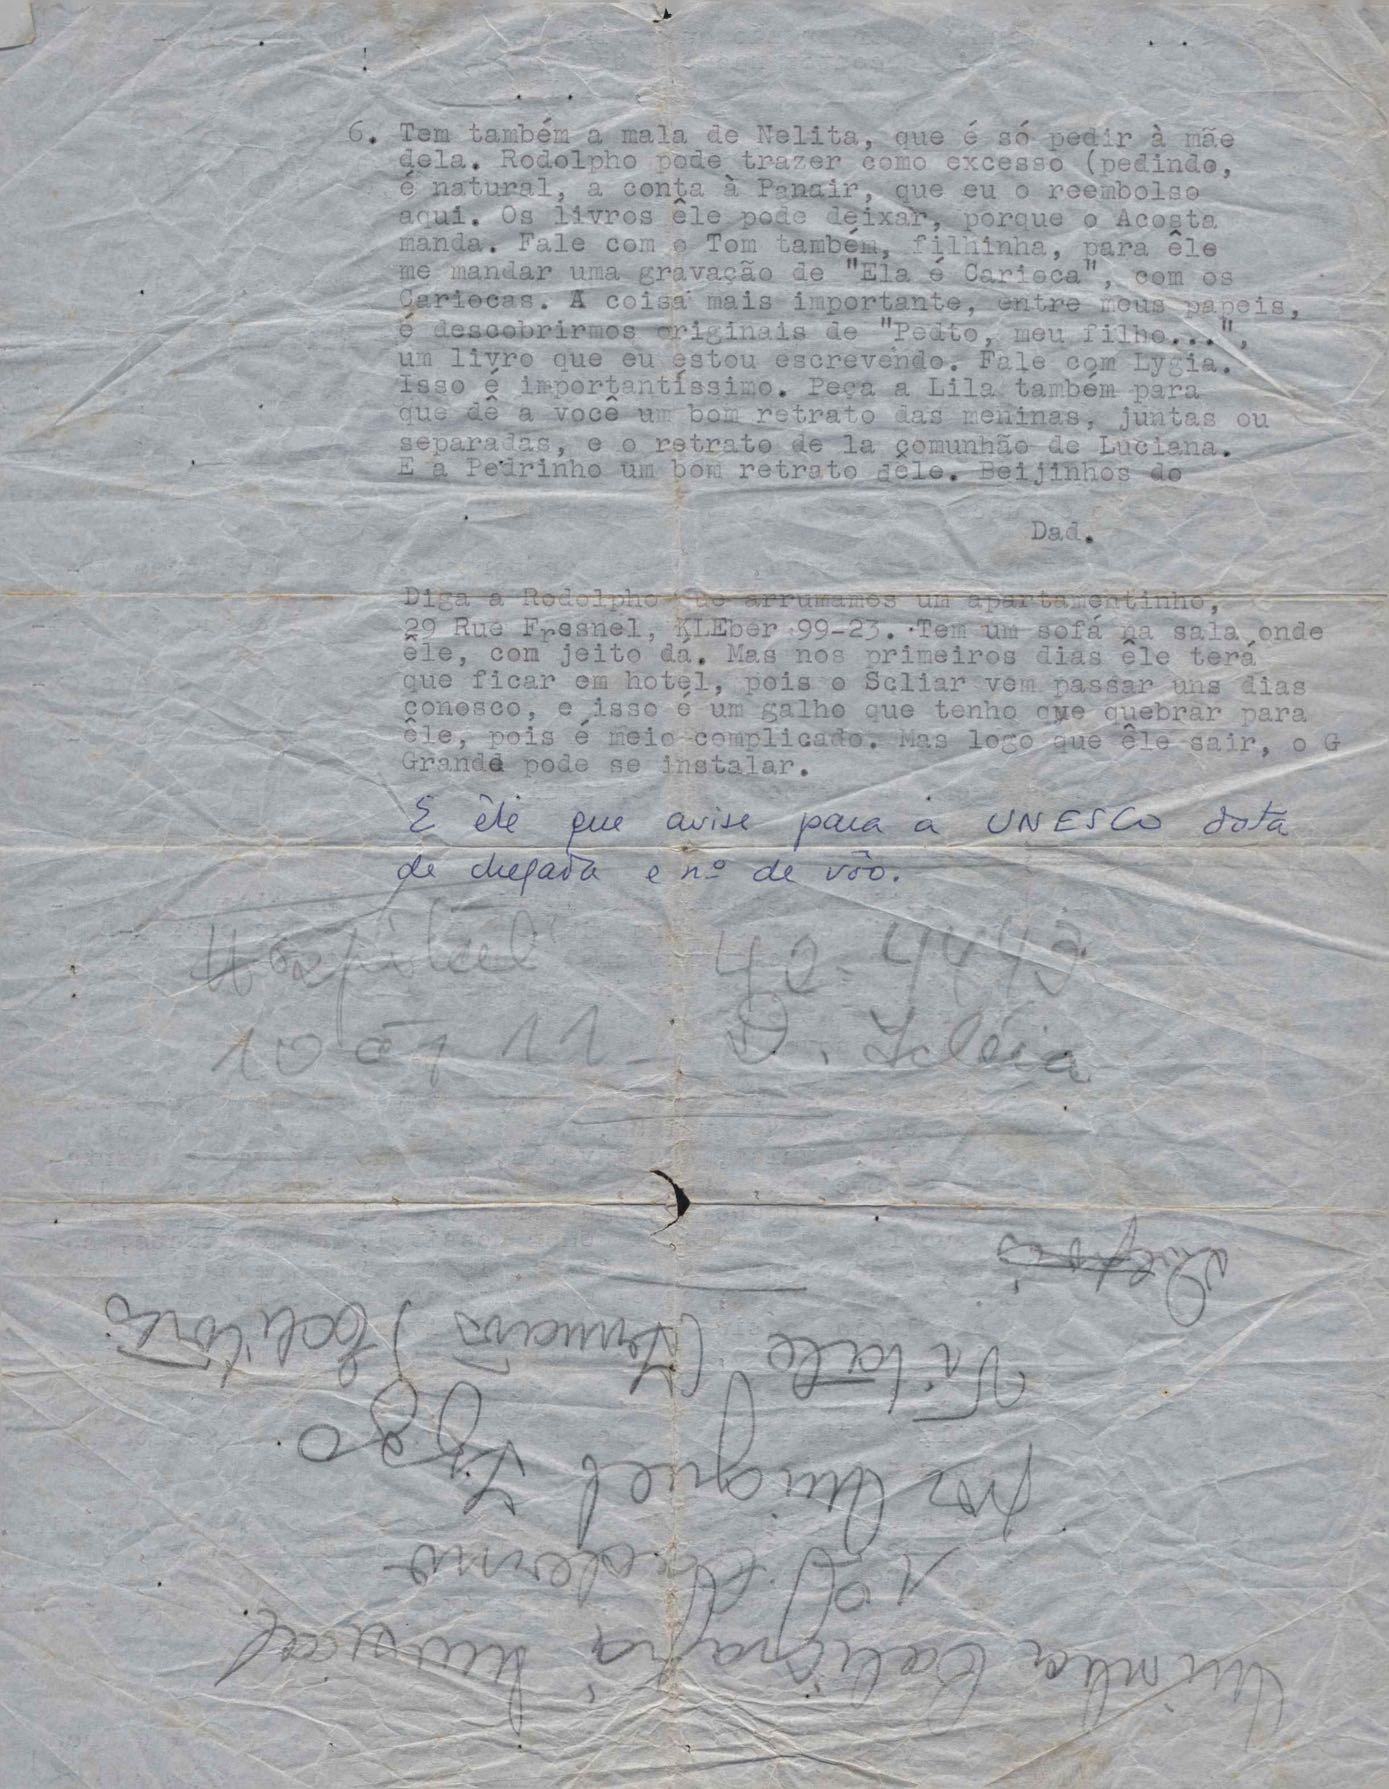 6. Tem também a mala de Nelita, que é só pedir à mãe
dela. Rodolpho pode trazer como excesso (pedindo,
é natural, a conta à Panair, que eu o reembolso
aqui. Os livros êle pode deixar, porque o Acosta
manda. Fale com o Tom também, filhinha, para êle
me mandar uma gravação de "Ela é Carioca", com os
Cariocas. A coisa mais importante, entre meus papeis,
é descobrirmos originais de "Pedto, meu filho...",
um livro que eu estou escrevendo. Fale com Lygia.
Isso é importantíssimo. Peça a Lila também para
que dê a você um bom retrato das meninas, juntas ou
separadas, e o retrato de 1a comunhão de Luciana.
E a Pedrinho um bom retrato dêle. Beijinhos do
Dad.
Diga a Rodolpho que arrumamos um apartamentinho,
29 Rue Fresnel, KLEber 99-23. Tem um sofá na sala onde
êle, com jeito dá. Mas nos primeiros dias êle terá
que ficar em hotel, pois o Scliar vem passar uns dias
conosco, e isso é um galho que tenho que quebrar para
êle, pois é meio complicado. Mas logo que êle sair, o G
Grande pode se instalar.
E êle que avise para a UNESCO data
de chegada e nº de vôo.
Hospital 40-4443
10 às 11 - D.
Minha Caligrafia Musical
1º Caderno
por Miguel Izzo
Vitale (Irmãos) Editores